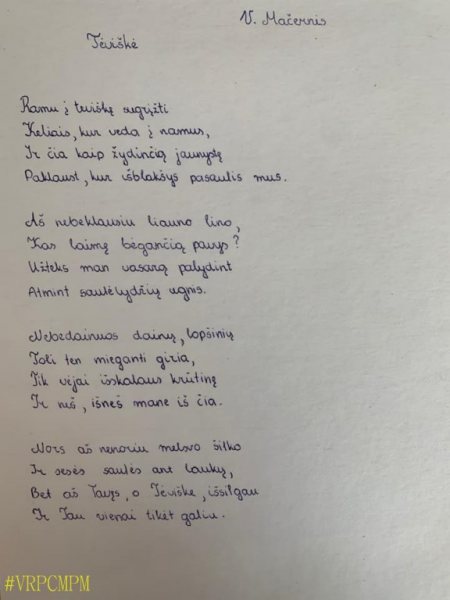 V. Mačernis
Tėviškė
Ramu į tėviškę sugrįžti
Keliais, kur veda į namus,
Ir čia kaip žydinčią jaunystę
Paklaust, kur išblaškys pasaulis mus.
Aš nebeklausiu liauno lino,
Kas laimę bėgančią pavys?
Užteks man vasarą palydint
Atmint saulėlydžių ugnis.
Nebedainuos dainų, lopšinių
Toli ten mieganti giria,
Tik vėjai išskalaus krūtinę
Ir neš, išneš mane iš čia.
Nors aš nenoriu melsvo šilko
Ir sesės saulės ant laukų,
Bet aš Tavęs, o Tėviške, išsilgau
Ir Tau vienai tikėt galiu.
#VRPCMPM